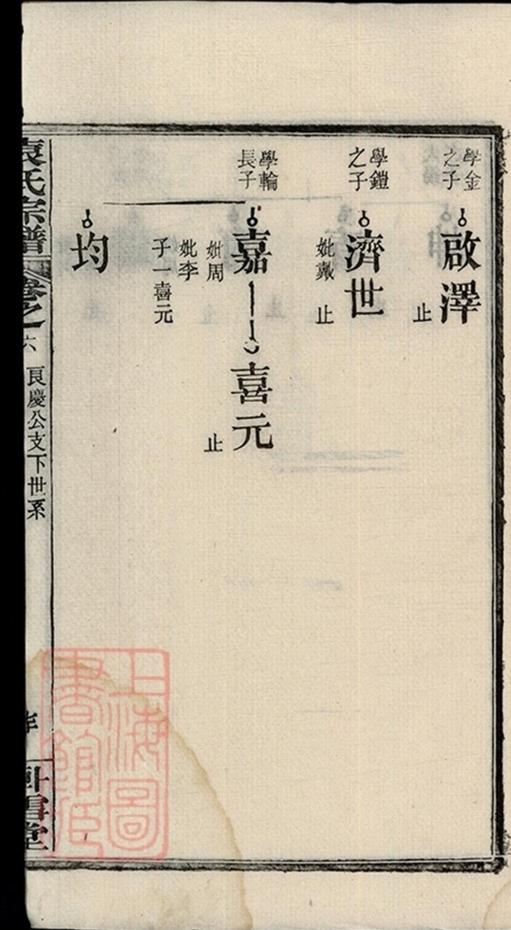 學金
之子
啟澤
止
學鎧
之子
濟世
妣戴
止
學輪
長子
嘉
喜元
妣周
妣李
子一喜元
止
均
袁氏宗譜
卷之六
良慶公支下世系
臥雪堂
上海圖
書館藏